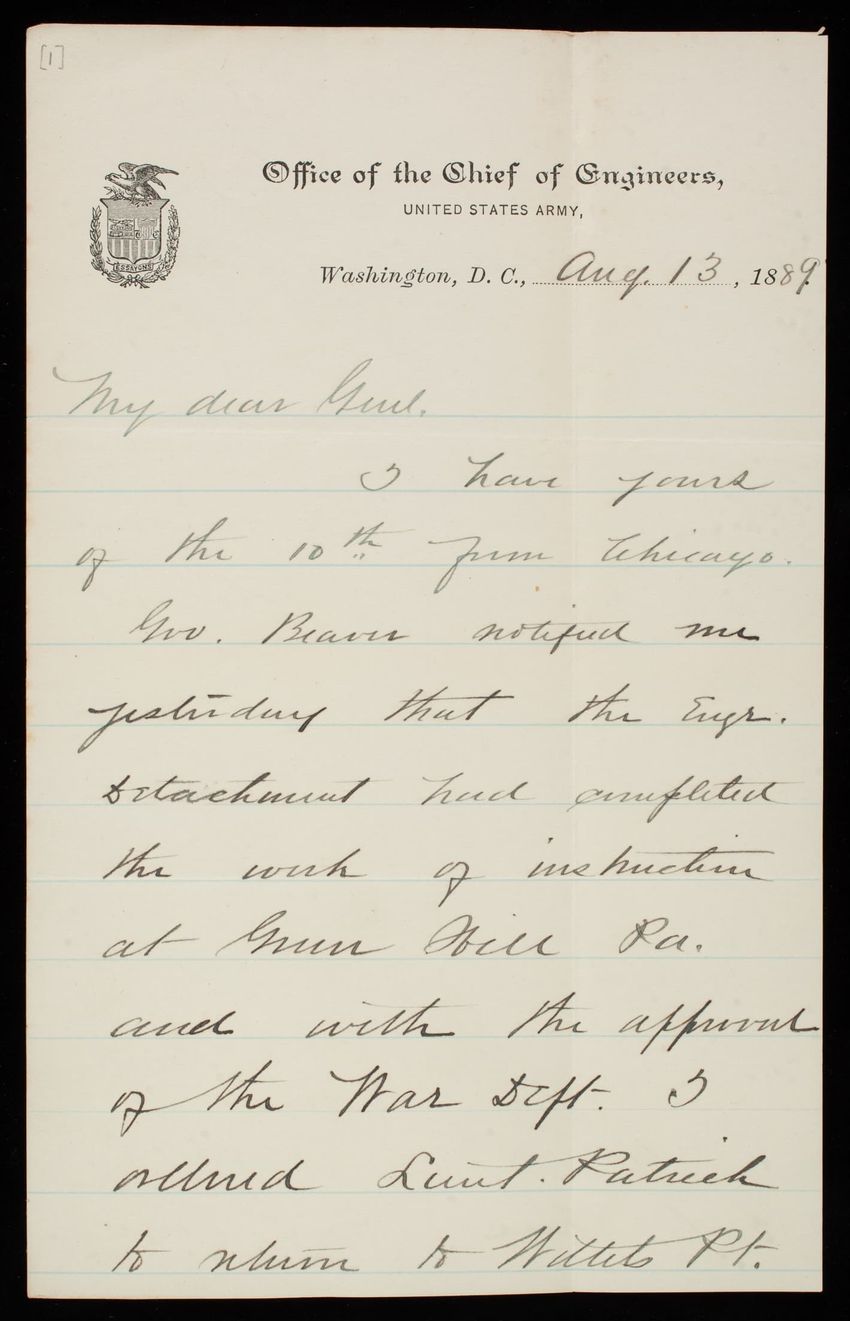 [1]
Office of the Chief of Engineers,
UNITED STATES ARMY,
ESSAYONS
Washington, D. C., Aug. 13, 1889.
My dear Genl.
I have yours
of the 10th from Chicago.
Gov. Beaver notified me
yesterday that the Engr.
Detachment had completed
the work of instruction
at Grover Hill Pa.
and with the approval
of the War Dept. I
ordered Lieut. Patrick
to return to Willets Pt.